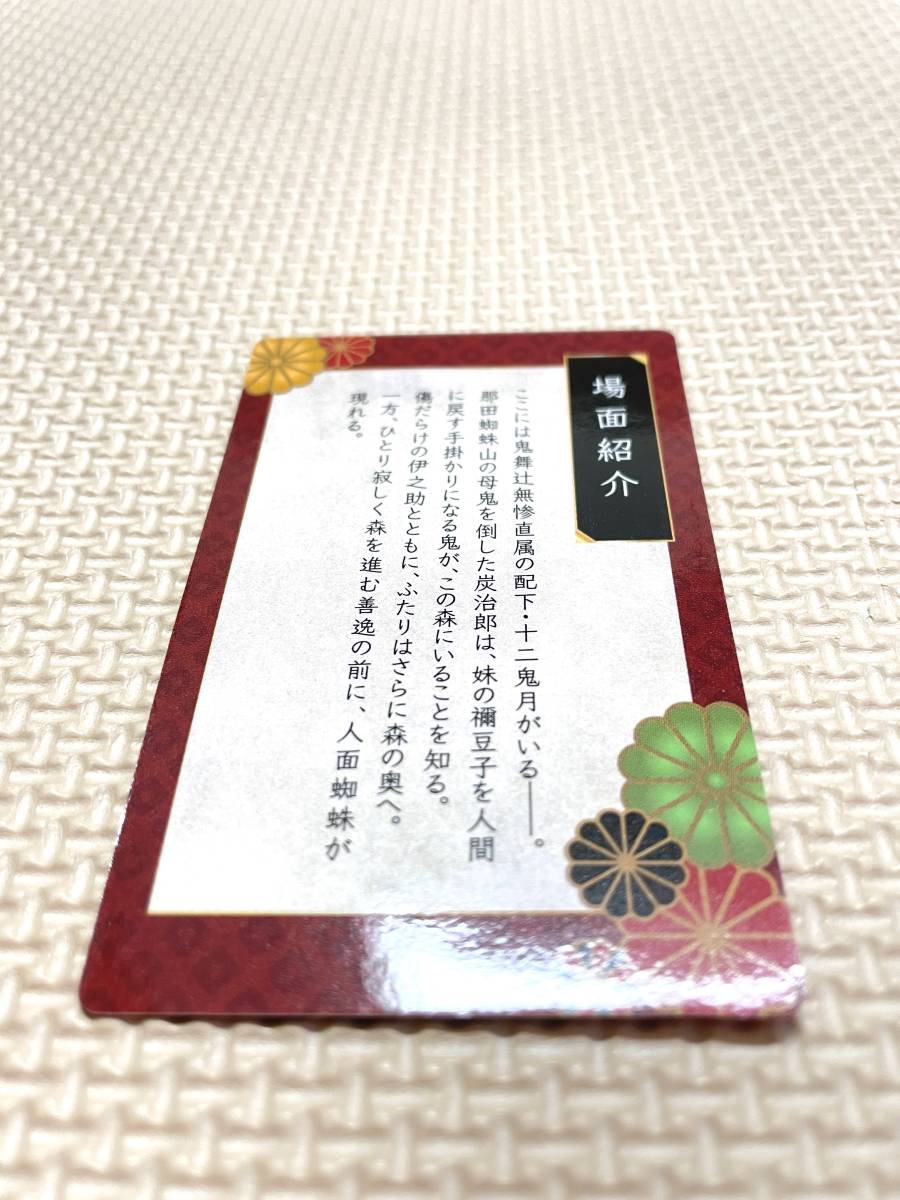 場面紹介
ここには鬼舞辻無惨直属の配下・十二鬼月がいる――。
那田蜘蛛山の母鬼を倒した炭治郎は、妹の禰豆子を人間
に戻す手掛かりになる鬼が、この森にいることを知る。
傷だらけの伊之助とともに、ふたりはさらに森の奥へ。
一方、ひとり寂しく森を進む善逸の前に、人面蜘蛛が
現れる。